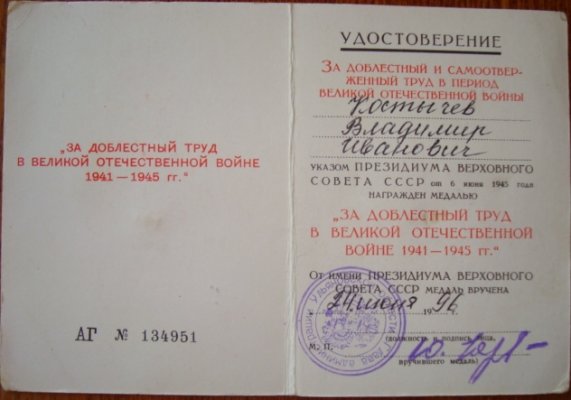 „ЗА ДОБЛЕСТНЫЙ ТРУД
В ВЕЛИКОЙ ОТЕЧЕСТВЕННОЙ ВОЙНЕ
1941—1945 гг.“
АГ № 134951
УДОСТОВЕРЕНИЕ
ЗА ДОБЛЕСТНЫЙ И САМООТВЕР-
ЖЕННЫЙ ТРУД В ПЕРИОД
ВЕЛИКОЙ ОТЕЧЕСТВЕННОЙ ВОЙНЫ
Костычев
Владимир
Иванович
УКАЗОМ ПРЕЗИДИУМА ВЕРХОВНОГО
СОВЕТА СССР от 6 июня 1945 года
НАГРАЖДЕН МЕДАЛЬЮ
„ЗА ДОБЛЕСТНЫЙ ТРУД
В ВЕЛИКОЙ ОТЕЧЕСТВЕННОЙ
ВОЙНЕ 1941—1945 гг.“
ОТ ИМЕНИ ПРЕЗИДИУМА ВЕРХОВНОГО
СОВЕТА СССР МЕДАЛЬ ВРУЧЕНА
24 июня 1996
М. П.
(должность и подпись лица,
вручившего медаль)